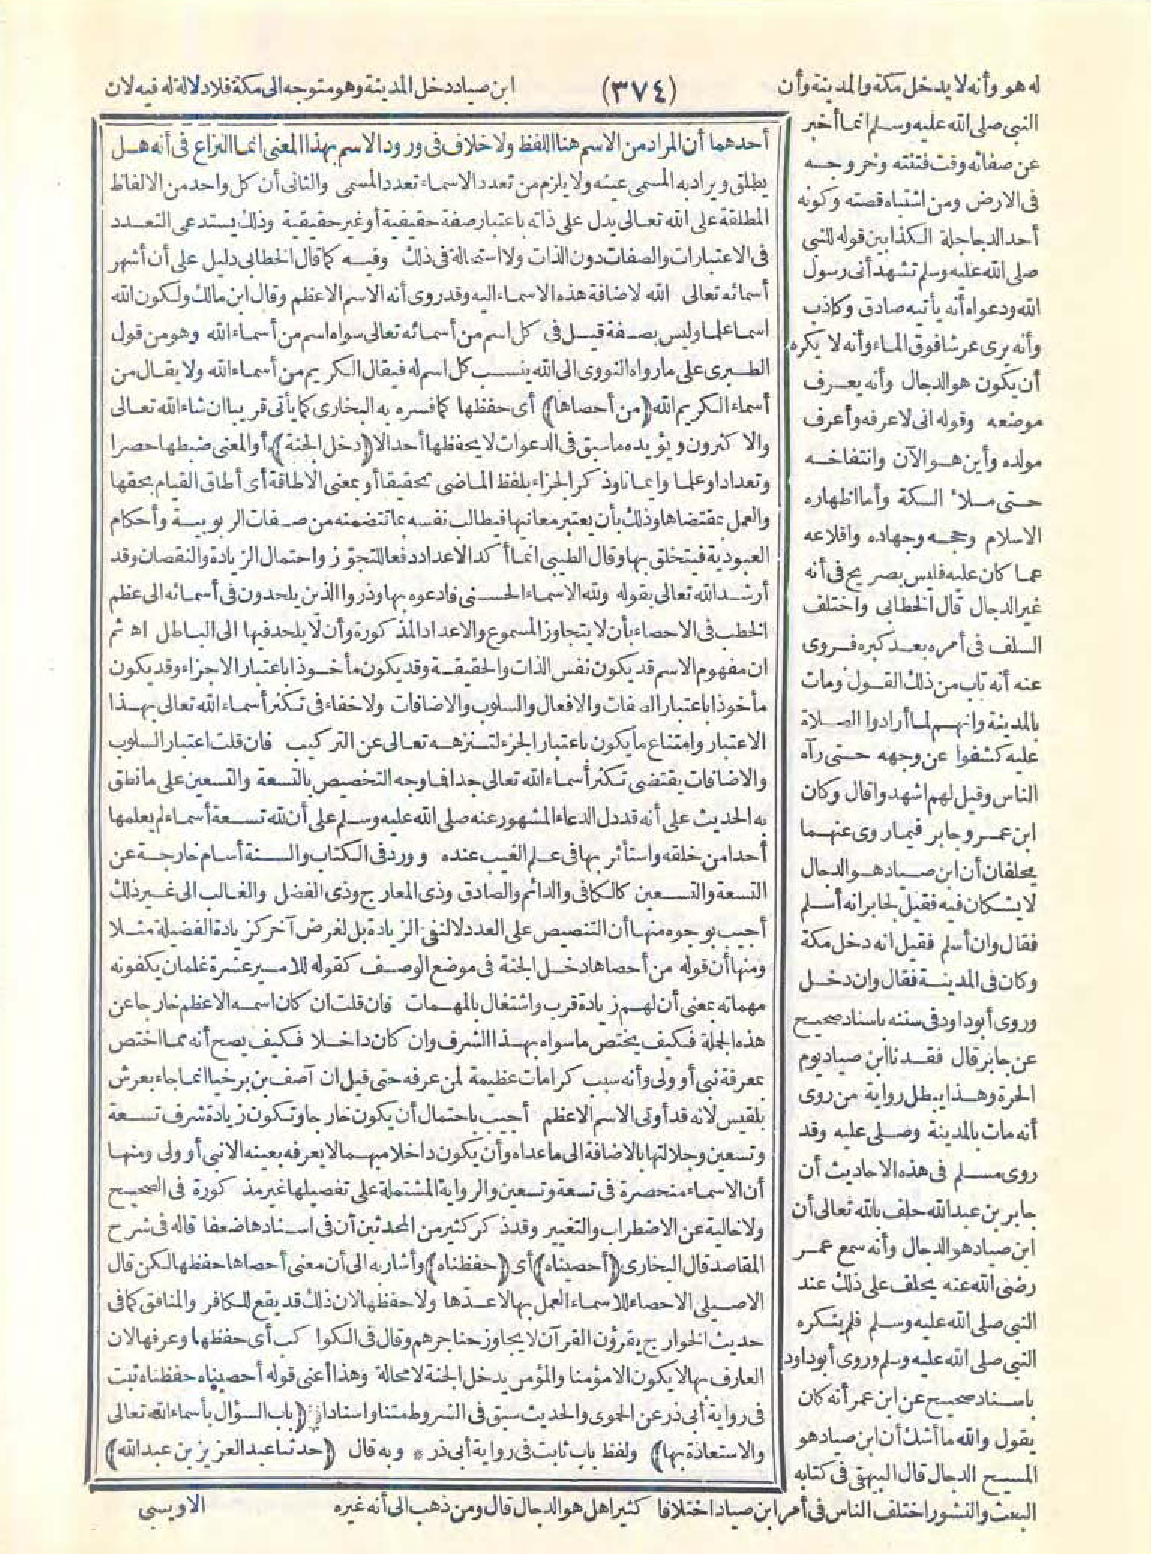 له هو وأنه لا يدخل مكة والمدينة وأن
(٣٧٤)
ابن صياد دخل المدينة وهو متوجه الى مكة فلا دلالة له فيه لان
النبي صلى الله عليه وسلم انما أخبر
عن صفاته وقت فتنته وخروجه
فى الارض ومن اشتباه قصته وكونه
أحد الدجاجلة الكذابين قوله للنبي
صلى الله عليه وسلم تشهد أنى رسول
الله ودعواه أنه يأتيه صادق وكاذب
وأنه يرى عرشا فوق الماء وأنه لا يكره
أن يكون هو الدجال وأنه يعرف
موضعه وقوله انى لاعرفه وأعرف
مولده وأين هو الآن وانتفاخه
حتى ملأ السكة وأما اظهاره
الاسلام وحجه وجهاده واقلاعه
عما كان عليه فليس بصريح فى أنه
غير الدجال قال الخطابى واختلف
السلف فى أمره بعد كبره فروى
عنه أنه تاب من ذلك القول ومات
بالمدينة وانهم لما أرادوا الصلاة
عليه كشفوا عن وجهه حتى رآه
الناس وقيل لهم اشهدوا قال وكان
ابن عمر وجابر فيما روى عنهما
يحلفان أن ابن صياد هو الدجال
لا يشكان فيه فقيل لجابر انه أسلم
فقال وان أسلم فقيل انه دخل مكة
وكان فى المدينة فقال وان دخل
وروى أبو داود فى سننه باسناد صحيح
عن جابر قال فقدنا ابن صياد يوم
الحرة وهذا يبطل رواية من روى
أنه مات بالمدينة وصلى عليه وقد
روى مسلم فى هذه الاحاديث أن
جابر بن عبد الله حلف بالله تعالى أن
ابن صياد هو الدجال وأنه سمع عمر
رضى الله عنه يحلف على ذلك عند
النبي صلى الله عليه وسلم فلم ينكره
النبي صلى الله عليه وسلم وروى أبو داود
باسناد صحيح عن ابن عمر أنه كان
يقول والله ما أشك أن ابن صياد هو
المسيح الدجال قال البيهقى فى كتابه
البعث والنشور اختلف الناس فى أمر ابن صياد اختلافا كثيرا هل هو الدجال قال ومن ذهب الى أنه غيره
أحدهما أن المراد من الاسم هنا اللفظ ولا خلاف فى ورود الاسم بهذا المعنى انما النزاع فى أنه هل
يطلق ويراد به المسمى عينه ولا يلزم من تعدد الاسماء تعدد المسمى والثانى أن كل واحد من الالفاظ
المطلقة على الله تعالى يدل على ذاته باعتبار صفة حقيقية أو غير حقيقية وذلك يستدعى التعدد
فى الاعتبارات والصفات دون الذات ولا استحالة فى ذلك وفيه كما قال الخطابى دليل على أن أشهر
أسمائه تعالى الله لاضافة هذه الاسماء اليه وقد روى أنه الاسم الاعظم وقال ابن مالك ولكون الله
اسما علما وليس بصفة قيل فى كل اسم من أسمائه تعالى سواه اسم من أسماء الله وهو من قول
الطبرى على ما رواه النووى الى الله ينسب كل اسم له فيقال الكريم من أسماء الله ولا يقال من
أسماء الكريم الله (من أحصاها) أى حفظها كما فسره به البخارى كما يأتى قريبا ان شاء الله تعالى
والاكثرون ويؤيده ما سبق فى الدعوات لا يحفظها أحد الا (دخل الجنة) أو المعنى ضبطها حصرا
وتعدادا وعلما وايمانا وذكر الجزاء بلفظ الماضى تحقيقا أو بمعنى الاطاقة أى أطاق القيام بحقها
والعمل بمقتضاها وذلك بأن يعتبر معانيها فيطالب نفسه بما تتضمنه من صفات الربوبية وأحكام
العبودية فيتخلق بها وقال الطيبى انما أكد الاعداد دفعا للتجوز واحتمال الزيادة والنقصان وقد
أرشد الله تعالى بقوله ولله الاسماء الحسنى فادعوه بها وذروا الذين يلحدون فى أسمائه الى عظم
الخطب فى الاحصاء بأن لا يتجاوز المسموع والاعداد المذكورة وأن لا يلحد فيها الى الباطل اه ثم
ان مفهوم الاسم قد يكون نفس الذات والحقيقة وقد يكون مأخوذا باعتبار الاجزاء وقد يكون
مأخوذا باعتبار الصفات والافعال والسلوب والاضافات ولا خفاء فى تكثر أسماء الله تعالى بهذا
الاعتبار وامتناع ما يكون باعتبار الجزء لتنزهه تعالى عن التركيب فان قلت اعتبار السلوب
والاضافات يقتضى تكثر أسماء الله تعالى جدا فما وجه التخصيص بالتسعة والتسعين على ما نطق
به الحديث على أنه قد دل الدعاء المشهور عنه صلى الله عليه وسلم على أن لله تسعة أسماء لم يعلمها
أحدا من خلقه واستأثر بها فى علم الغيب عنده وورد فى الكتاب والسنة أسام خارجة عن
التسعة والتسعين كالكافى والدائم والصادق وذى المعارج وذى الفضل والغالب الى غير ذلك
أجيب بوجوه منها أن التنصيص على العدد لا لنفى الزيادة بل لغرض آخر كزيادة الفضيلة مثلا
ومنها أن قوله من أحصاها دخل الجنة فى موضع الوصف كقوله للامير عشرة غلمان يكفونه
مهماته بمعنى أن لهم زيادة قرب واشتغال بالمهمات فان قلت ان كان اسمه الاعظم خارجا عن
هذه الجملة فكيف يختص ما سواه بهذا الشرف وان كان داخلا فكيف يصح أنه مما اختص
بمعرفة نبى أو ولى وأنه سبب كرامات عظيمة لمن عرفه حتى قيل ان آصف بن برخيا انما جاء بعرش
بلقيس لانه قد أوتى الاسم الاعظم أجيب باحتمال أن يكون خارجا وتكون زيادة شرف تسعة
وتسعين وجلالتها بالاضافة الى ما عداه وأن يكون داخلا مبهما لا يعرفه بعينه الا نبى أو ولى ومنها
أن الاسماء منحصرة فى تسعة وتسعين والرواية المشتملة على تفصيلها غير مذكورة فى الصحيح
ولا خالية عن الاضطراب والتغيير وقد ذكر كثير من المحدثين أن فى اسنادها ضعفا قاله فى شرح
المقاصد قال البخارى (أحصيناه) أى (حفظناه) وأشار به الى أن معنى أحصاها حفظها لكن قال
الاصيلى الاحصاء للاسماء العمل بها لا عدها ولا حفظها لان ذلك قد يقع للكافر والمنافق كما فى
حديث الخوارج يقرؤن القرآن لا يجاوز حناجرهم وقال فى الكواكب أى حفظها وعرفها لان
العارف بها لا يكون الا مؤمنا والمؤمن يدخل الجنة لا محالة وهذا أعنى قوله أحصيناه حفظناه ثبت
فى رواية أبى ذر عن الحموى والحديث سبق فى الشروط متنا واسنادا (باب السؤال بأسماء الله تعالى
والاستعاذة بها) ولفظ باب ثابت فى رواية أبى ذر * وبه قال (حدثنا عبد العزيز بن عبد الله)
الاويسى